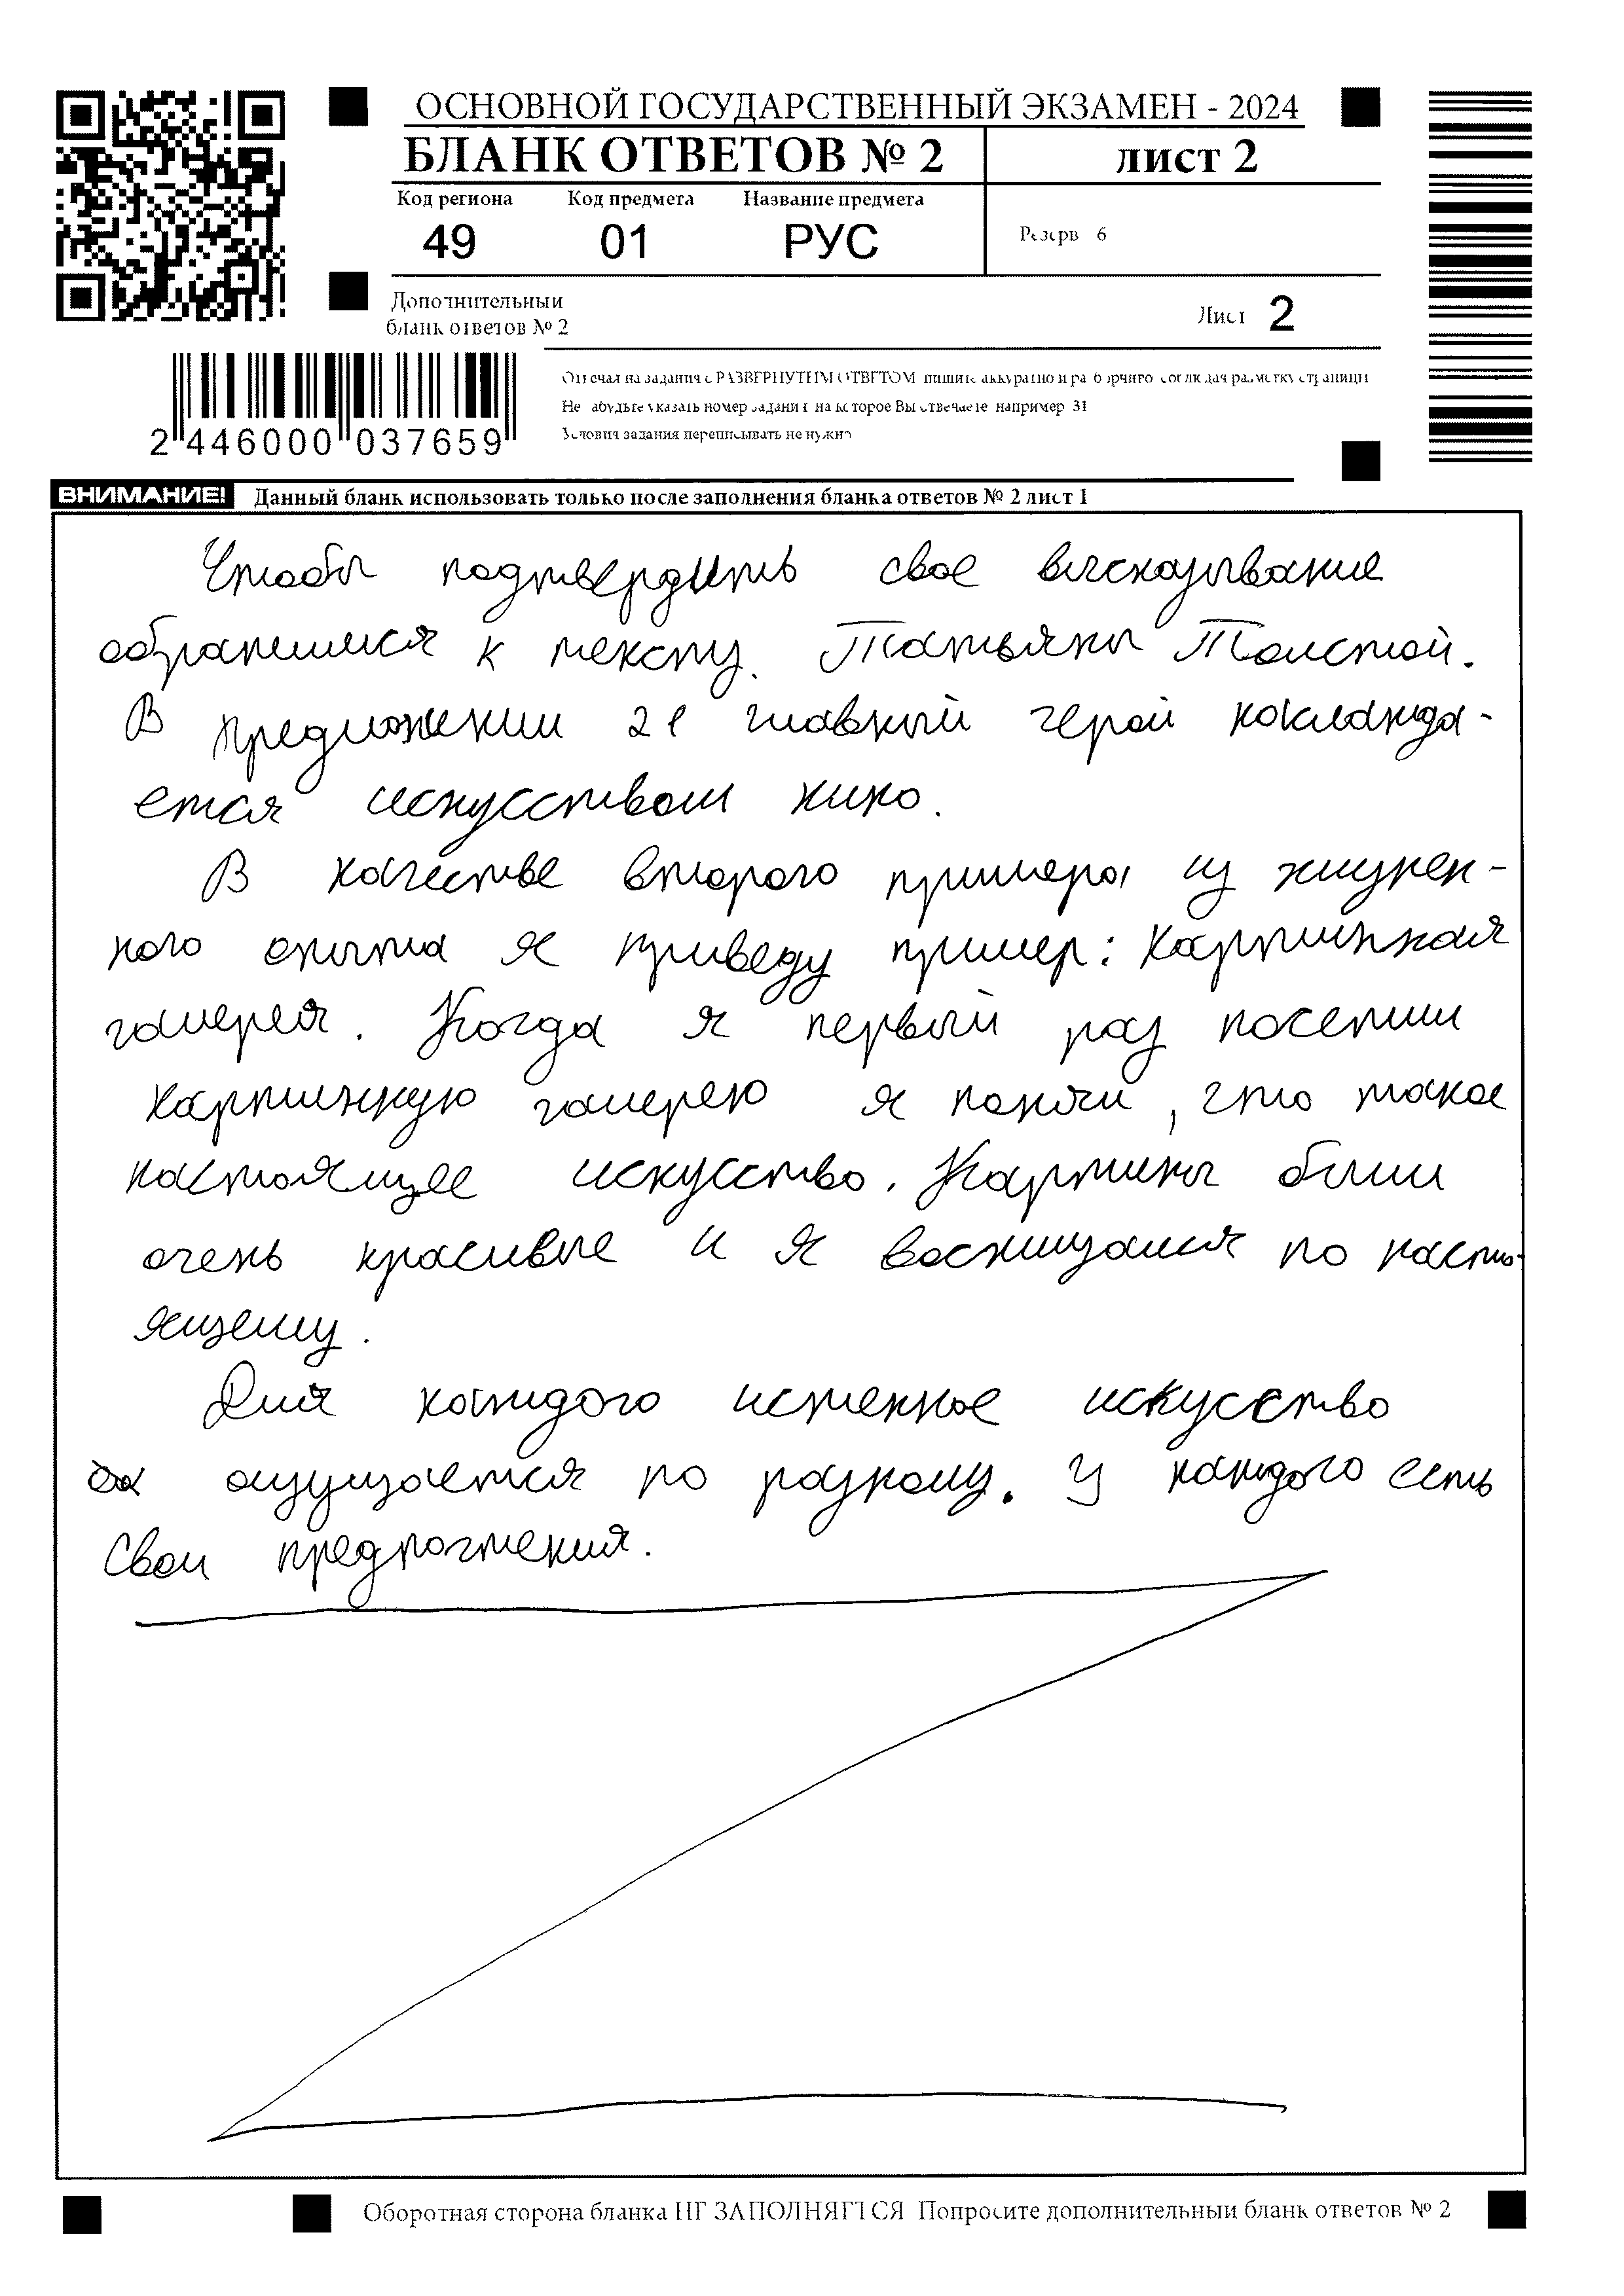 ОСНОВНОЙ ГОСУДАРСТВЕННЫЙ ЭКЗАМЕН - 2024
БЛАНК ОТВЕТОВ № 2
лист 2
Код региона Код предмета Название предмета
49 01 РУС
Резерв 6
Дополнительный
бланк ответов № 2
Лист 2
Отвечая на задания с РАЗВЕРНУТЫМ ОТВЕТОМ пишите аккуратно и разборчиво соблюдая разметку страницы
Не забудьте указать номер задания на которое Вы отвечаете например 31
Условия задания переписывать не нужно
2 446000 037659
ВНИМАНИЕ! Данный бланк использовать только после заполнения бланка ответов № 2 лист 1
Чтобы подтвердить свое высказывание
обратимся к тексту Татьяны Толстой.
В предложении 21 главный герой наслажда-
ется искусством кино.
В качестве второго примера из жизнен-
ного опыта я приведу пример: Картинная
галерея. Когда я первый раз посетил
картинную галерею я понял, что такое
настоящее искусство. Картины были
очень красивые и я восхищался по насто-
ящему.
Для каждого истенное искусство
ощущается по разному. У каждого есть
свои предпочтения.
Оборотная сторона бланка НЕ ЗАПОЛНЯЕТСЯ Попросите дополнительный бланк ответов № 2